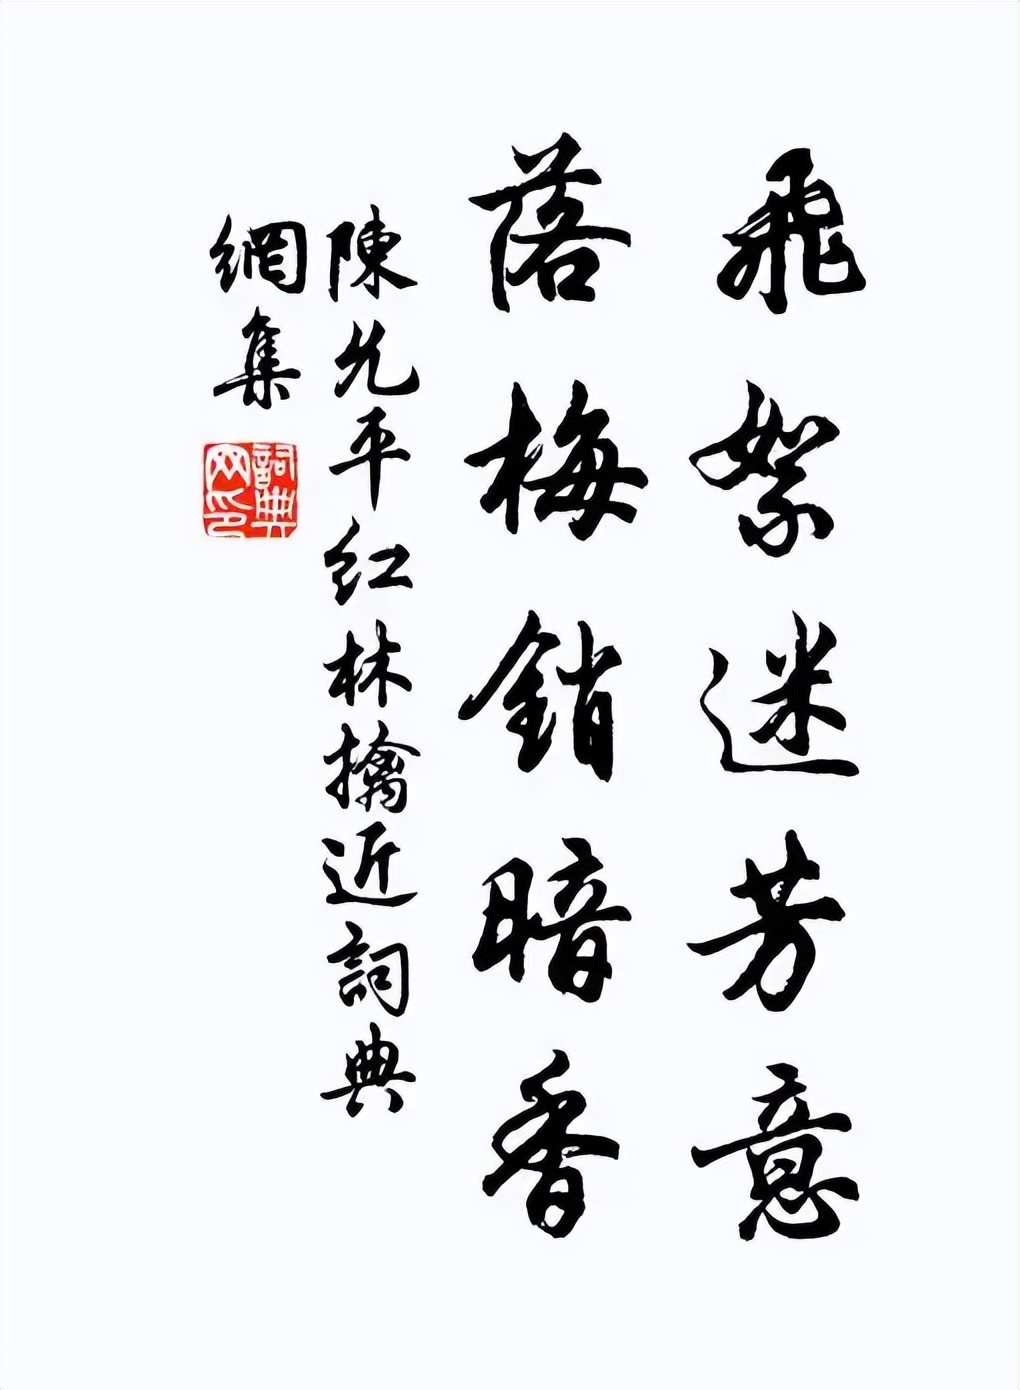 飛絮迷芳意
落梅銷暗香
陳允平红林擒近詞典
網集
詞典
网印